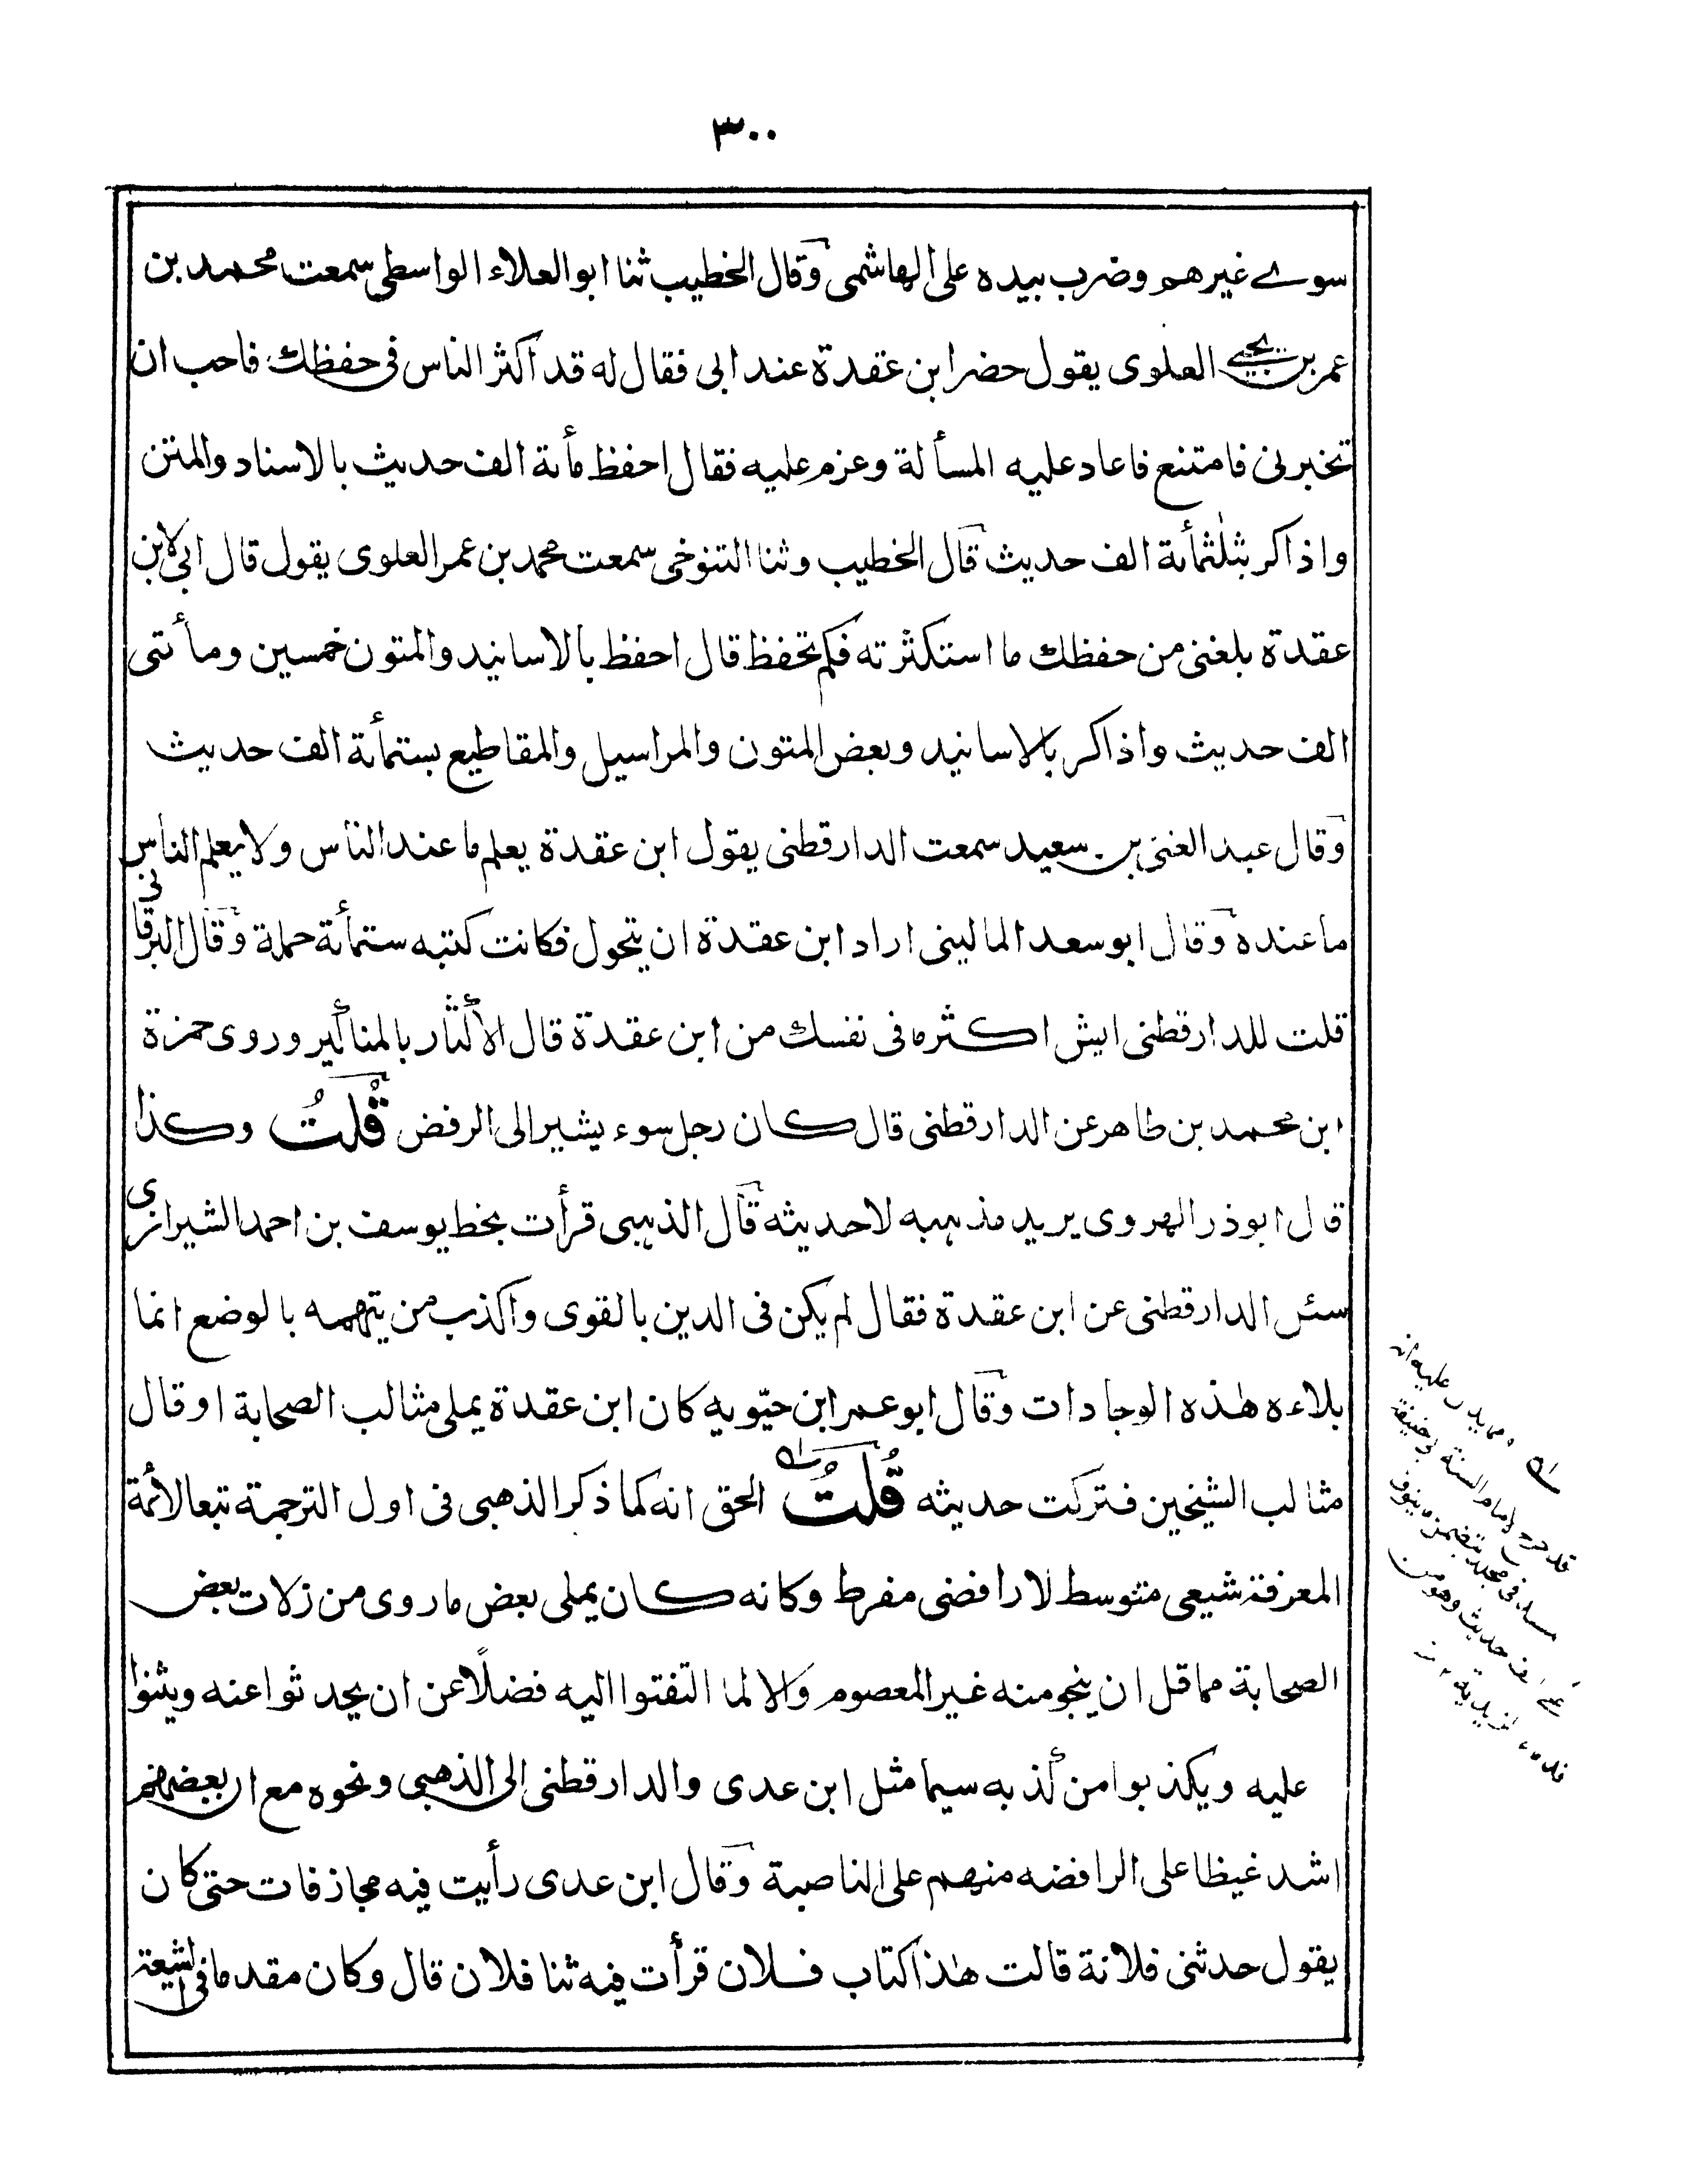 ٣٠٠
سوے غيرهم وضرب بيده على الهاشمى وقال الخطيب ثنا ابو العلاء الواسطى سمعت محمد بن
عمر بن يحيى العلوى يقول حضر ابن عقدة عند ابى فقال له قد اكثر الناس فى حفظك فاحب ان
تخبرنى فامتنع فاعاد عليه المسألة وعزم عليه فقال احفظ مأىة الف حديث بالاسناد والمتن
واذاكر بثلٰثمأىة الف حديث قال الخطيب وثنا التنوخى سمعت محمد بن عمر العلوى يقول قال ابى لابن
عقدة بلغنى من حفظك ما استكثرته فكم تحفظ قال احفظ بالاسانيد والمتون خمسين ومأتى
الف حديث واذاكر بالاسانيد وبعض المتون والمراسيل والمقاطيع بستمأىة الف حديث
وقال عبد الغنى بن سعيد سمعت الدارقطنى يقول ابن عقدة يعلم ما عند الناس ولا يعلم الناس
ما عنده وقال ابو سعد المالينى اراد ابن عقدة ان يتحول فكانت كتبه ستمأىة حملة وقال البرقانى
قلت للدارقطنى ايش اكثر ما فى نفسك من ابن عقدة قال الأكثار بالمناكير وروى حمزة
ابن محمد بن طاهر عن الدارقطنى قال كان رجل سوء يشير الى الرفض قُلتُ وكذا
قال ابو ذر الهروى يريد مذهبه لا حديثه قال الذهبى قرأت بخط يوسف بن احمد الشيرازى
سئل الدارقطنى عن ابن عقدة فقال لم يكن فى الدين بالقوى واكذب من يتهمه بالوضع انما
بلاءه هٰذه الوجادات وقال ابو عمر ابن حيّويه كان ابن عقدة يملى مثالب الصحابة او قال
مثالب الشيخين فتركت حديثه قُلتُ الحق انه كما ذكر الذهبى فى اول الترجمة تبعا لائمة
المعرفة شيعى متوسط لا رافضى مفرط وكانه كان يملى بعض ما روى من زلات بعض
الصحابة مما قل ان ينجو منه غير المعصوم والا لما التفتوا اليه فضلًا عن ان يحدثوا عنه ويثنوا
عليه ويكذبوا من كذبه سيما مثل ابن عدى والدارقطنى الى الذهبى ونحوه مع ان بعضهم
اشد غيظا على الرافضه منهم على الناصبة وقال ابن عدى رأيت فيه مجازفات حتى كان
يقول حدثنى فلانة قالت هٰذا كتاب فلان قرأت فيه ثنا فلان قال وكان مقدما فى الشيعة
عليه انه
قد امام السنة ابو حنيفة
مسند فى مجلد
الف حديث وهو من